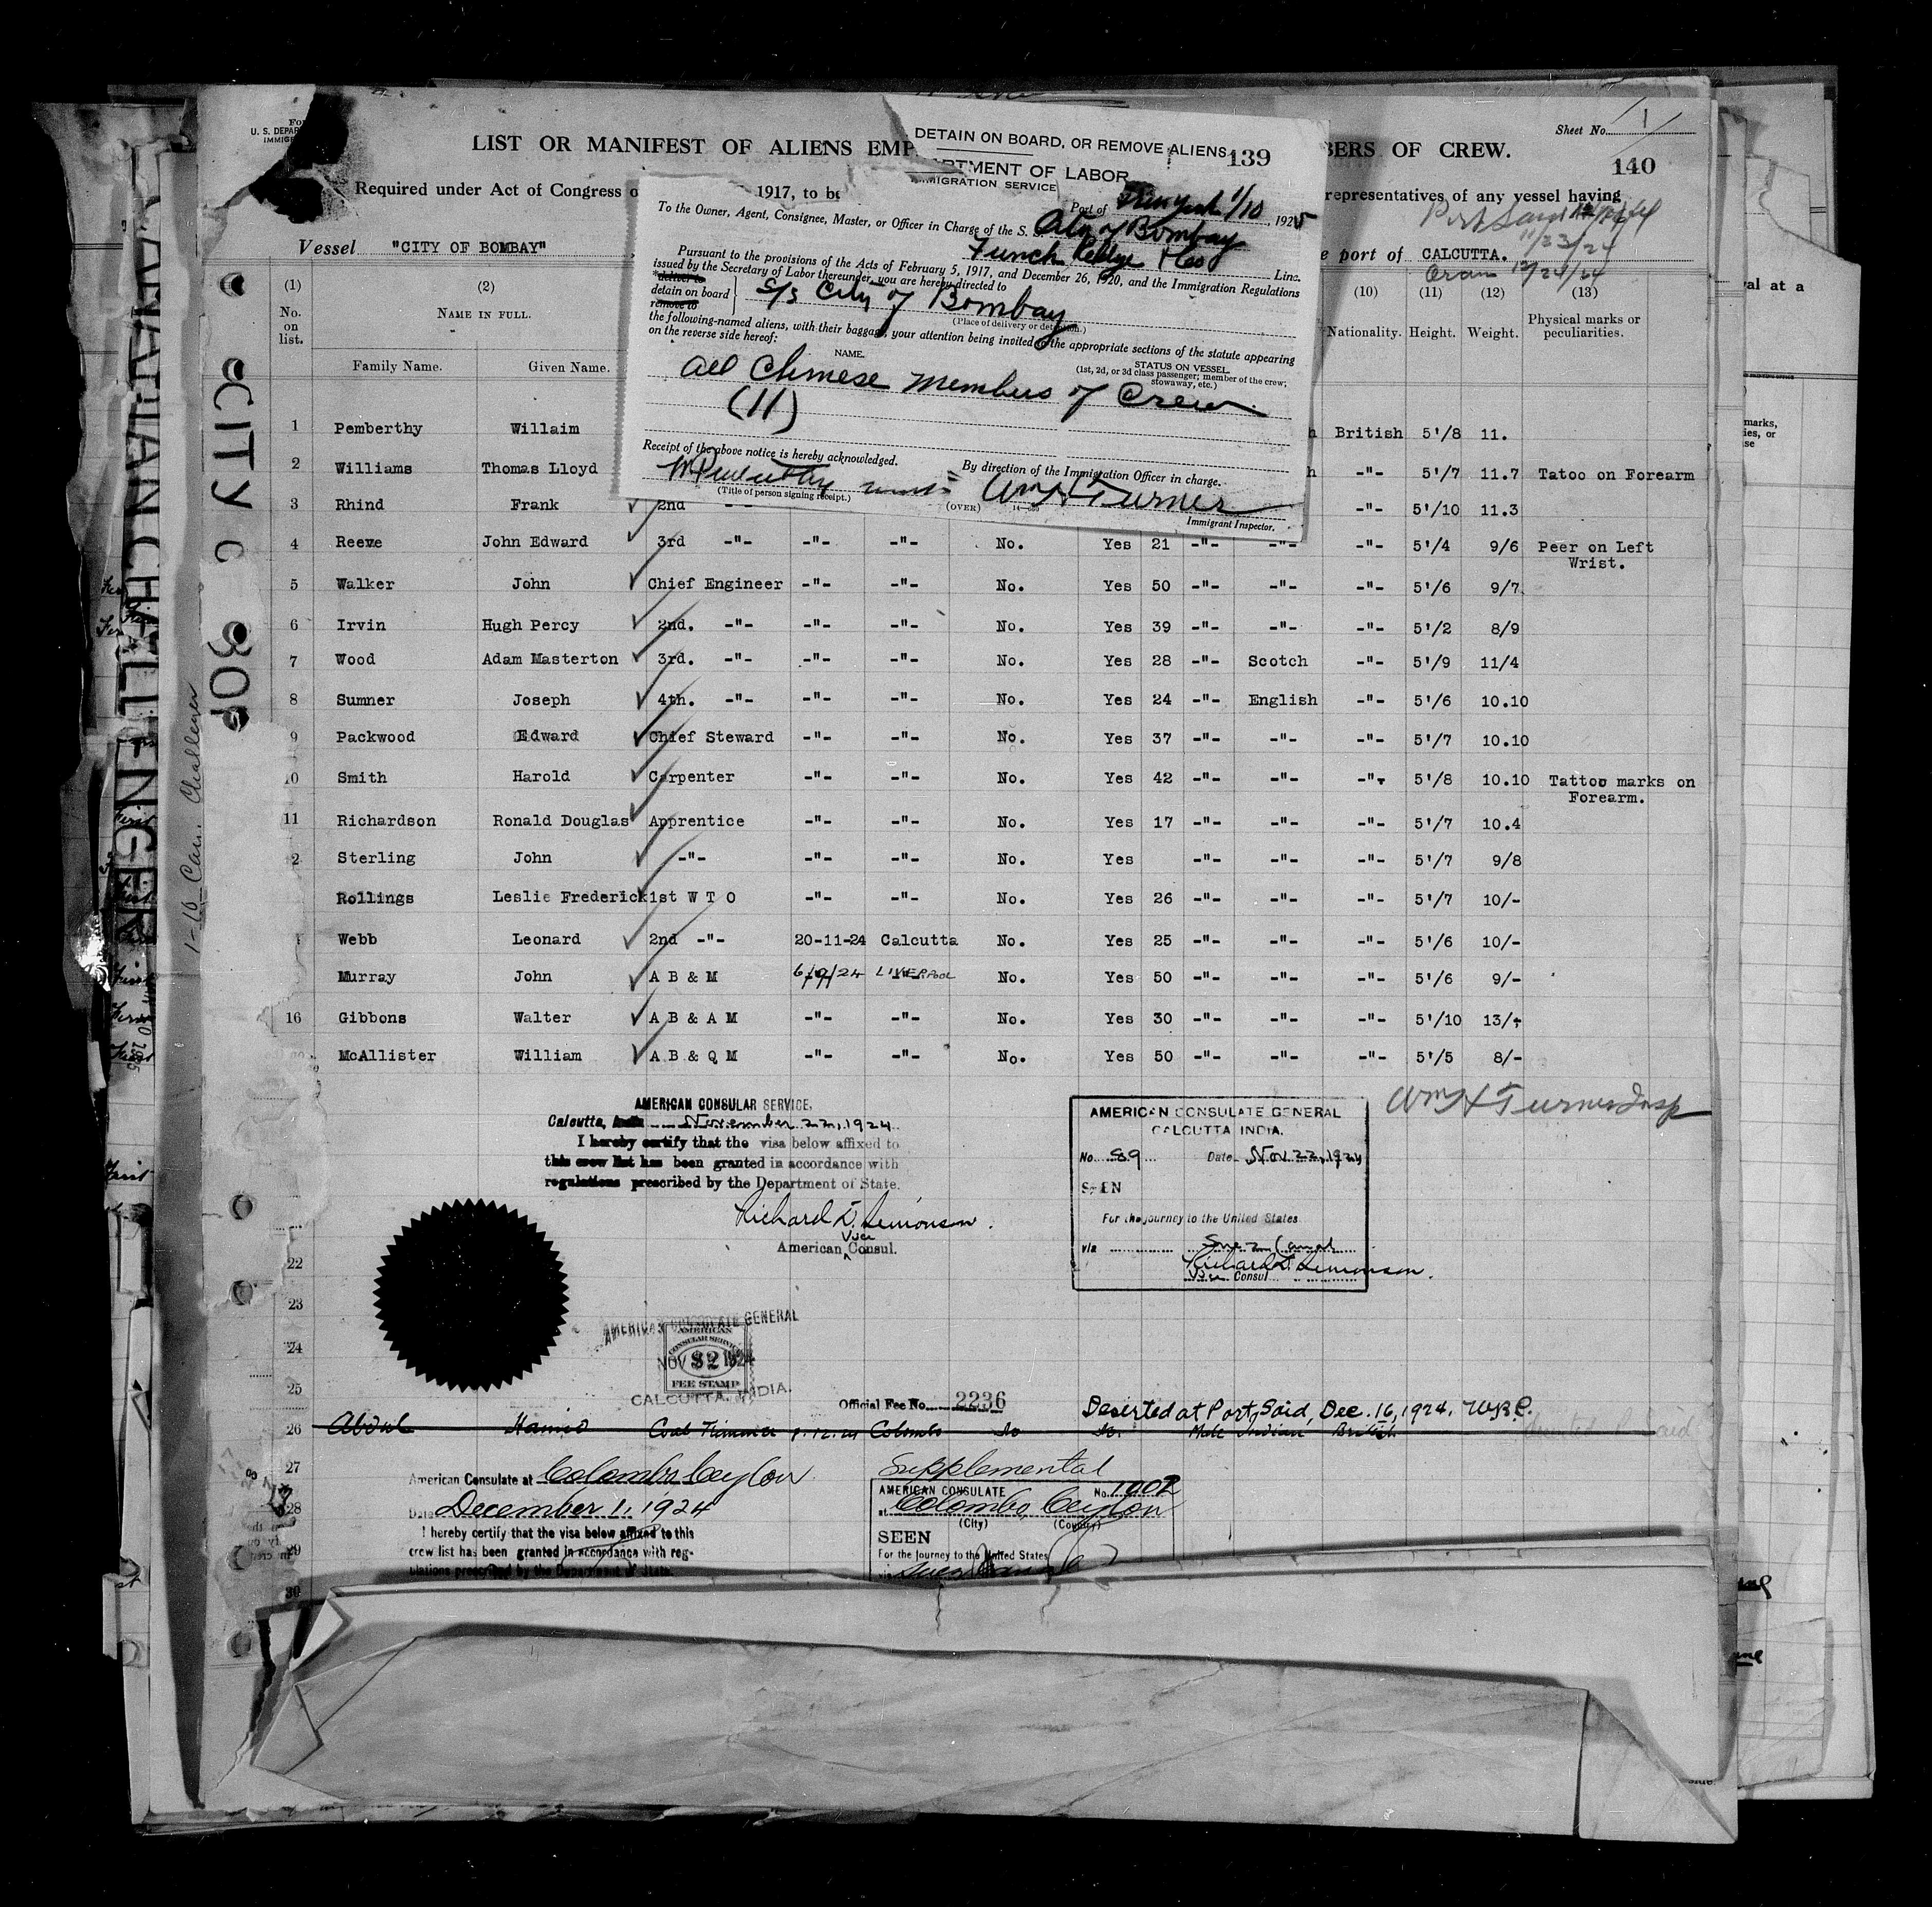 Sheet No. 1
140
U. S. DEPAR
LIST OR MANIFEST OF ALIENS EMP
BERS OF CREW.
Required under Act of Congress o
1917, to be
representatives of any vessel having
Vessel "CITY OF BOMBAY"
e port of CALCUTTA.
11/23/24
Oran 12/24/24
DETAIN ON BOARD, OR REMOVE ALIENS
139
ARTMENT OF LABOR
IMMIGRATION SERVICE
Port of 1/10, 1925
To the Owner, Agent, Consignee, Master, or Officer in Charge of the S. S. City of Bombay
Funch Line.
Pursuant to the provisions of the Acts of February 5, 1917, and December 26, 1920, and the Immigration Regulations
issued by the Secretary of Labor thereunder, you are hereby directed to
*deliver to
detain on board
remove to
S/s City of Bombay
(Place of delivery or detention.)
the following-named aliens, with their baggage, your attention being invited to the appropriate sections of the statute appearing
on the reverse side hereof:
NAME.
STATUS ON VESSEL.
(1st, 2d, or 3d class passenger; member of the crew;
stowaway, etc.)
All Chinese Members of Crew
(11)
Receipt of the above notice is hereby acknowledged.
By direction of the Immigration Officer in charge.
Wm H Turner
(Title of person signing receipt.)
(OVER)
Immigrant Inspector.
(1) (2) (10) (11) (12) (13)
No. on list.
NAME IN FULL.
Nationality. Height. Weight. Physical marks or peculiarities.
Family Name. Given Name.
1 Pemberthy Willaim h British 5'/8 11.
2 Williams Thomas Lloyd h -"- 5'/7 11.7 Tatoo on Forearm
3 Rhind Frank 2nd -"- -"- -"- -"- 5'/10 11.3
4 Reeve John Edward 3rd -"- -"- -"- No. Yes 21 -"- -"- -"- 5'/4 9/6 Peer on Left
Wrist.
5 Walker John Chief Engineer -"- -"- No. Yes 50 -"- -"- -"- 5'/6 9/7
6 Irvin Hugh Percy 2nd. -"- -"- -"- No. Yes 39 -"- -"- -"- 5'/2 8/9
7 Wood Adam Masterton 3rd. -"- -"- -"- No. Yes 28 -"- Scotch -"- 5'/9 11/4
8 Sumner Joseph 4th. -"- -"- -"- No. Yes 24 -"- English -"- 5'/6 10.10
9 Packwood Edward Chief Steward -"- -"- No. Yes 37 -"- -"- -"- 5'/7 10.10
10 Smith Harold Carpenter -"- -"- No. Yes 42 -"- -"- -"- 5'/8 10.10 Tattoo marks on
Forearm.
11 Richardson Ronald Douglas Apprentice -"- -"- No. Yes 17 -"- -"- -"- 5'/7 10.4
2 Sterling John -"- -"- -"- No. Yes -"- -"- -"- 5'/7 9/8
Rollings Leslie Frederick 1st W T O -"- -"- No. Yes 26 -"- -"- -"- 5'/7 10/-
Webb Leonard 2nd -"- 20-11-24 Calcutta No. Yes 25 -"- -"- -"- 5'/6 10/-
Murray John A B & M 6/9/24 LIVERPOOL No. Yes 50 -"- -"- -"- 5'/6 9/-
16 Gibbons Walter A B & A M -"- -"- No. Yes 30 -"- -"- -"- 5'/10 13/-
McAllister William A B & Q M -"- -"- No. Yes 50 -"- -"- -"- 5'/5 8/-
Wm H Turner Insp
AMERICAN CONSULAR SERVICE.
Calcutta, India November 22, 1924.
I hereby certify that the visa below affixed to
this crew list has been granted in accordance with
regulations prescribed by the Department of State.
Richard D. Simonson.
Vice
American Consul.
AMERICAN CONSULATE GENERAL
CALCUTTA INDIA.
No. 89 Date Nov 22, 1924
SEEN
For the journey to the United States
via Suez Canal
Richard D. Simonson.
Vice Consul
22
23
24
25
AMERICAN CONSULATE GENERAL
AMERICAN
CONSULAR SERVICE
NOV 22 1924
$2
FEE STAMP
CALCUTTA, INDIA.
Official Fee No. 2236
Deserted at Port Said, Dec. 16, 1924.
26 Abdul Hamid Coal Trimmer 1.12.24 Colombo No No. Male Indian British
27
28
29
30
American Consulate at Colombo, Ceylon
Date December 1, 1924
I hereby certify that the visa below affixed to this
crew list has been granted in accordance with reg-
ulations prescribed by the Department of State.
Supplemental
AMERICAN CONSULATE No. 1002
at Colombo, Ceylon
(City) (County)
SEEN
For the journey to the United States
via Suez Canal
CITY OF BOP
1-10 Can. Challenger
CANADIAN CHALLENGER
val at a
marks,